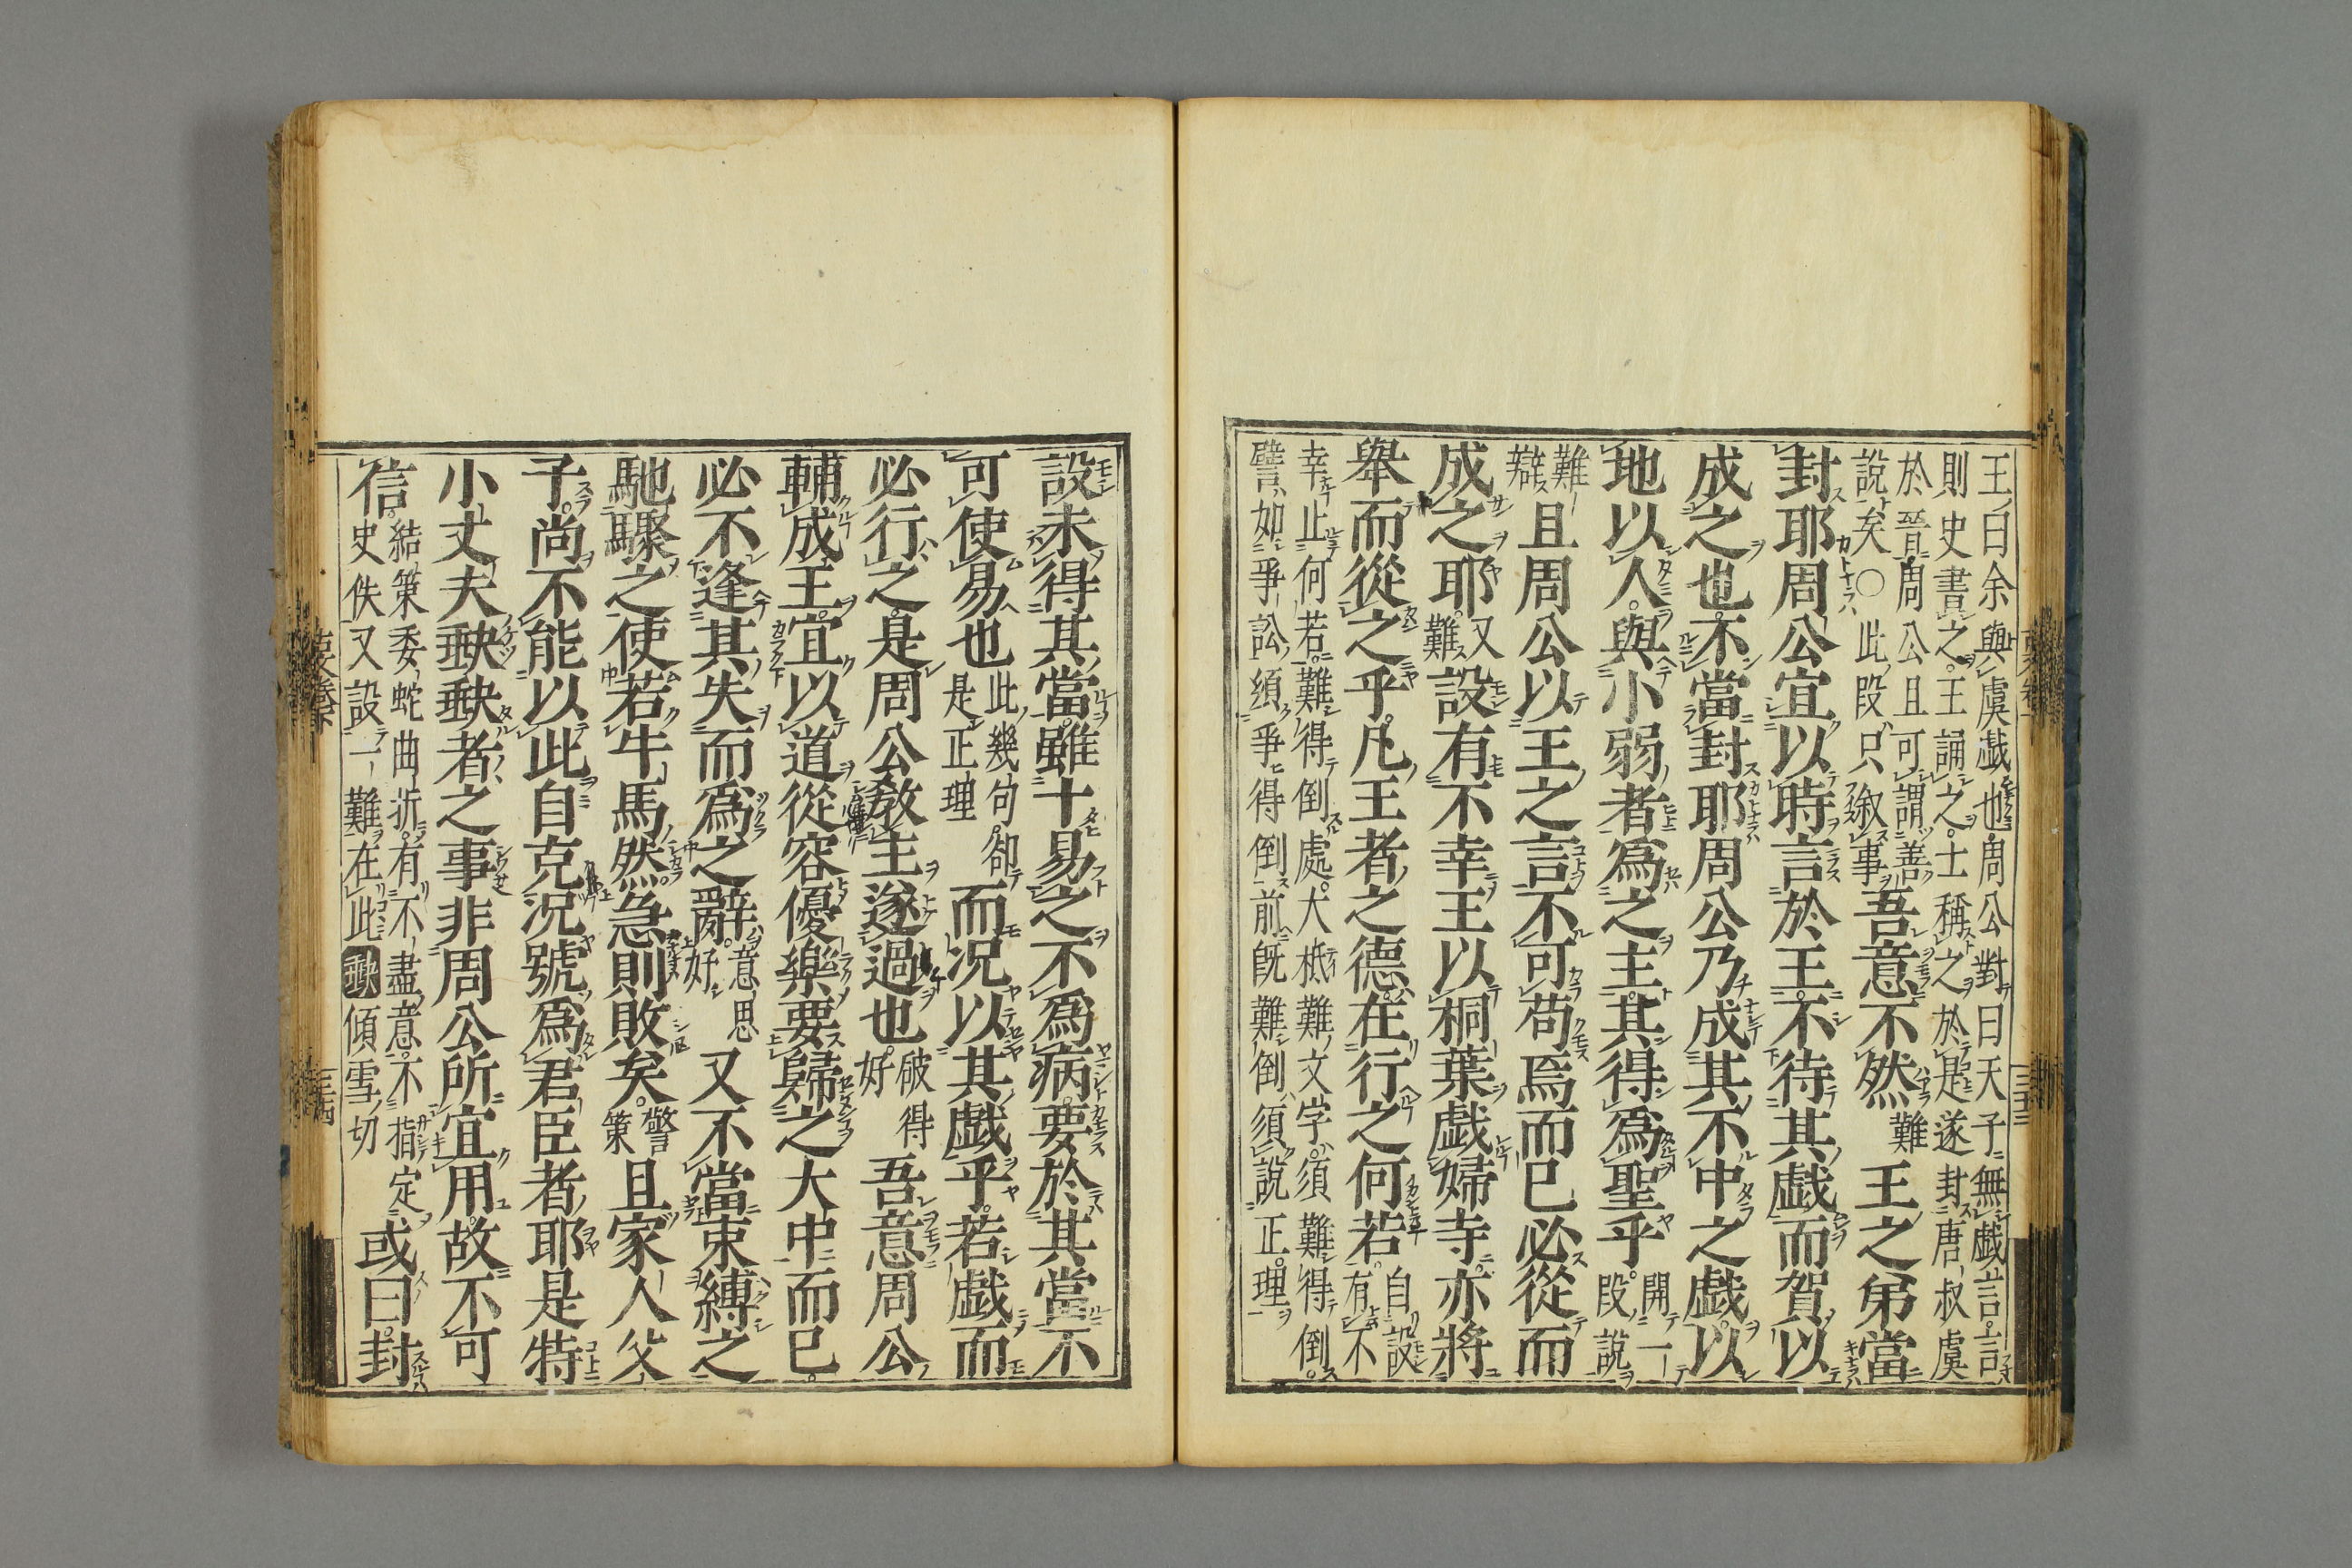 王曰余與虞戯也周公對曰天子無戯言言
則史書之王誦之士稱之於是遂封唐叔虞
於晉周公且可謂善
說矣○此段只叙事
吾意不然
難
王之弟當
封耶周公宜以時言於王不待其戯而賀以
成之也不當封耶周公乃成其不中之戯以
地以人與小弱者爲之主其得爲聖乎
開一
段說
難
辭
且周公以王之言不可苟焉而已必從而
成之耶
又
難
設有不幸王以桐葉戯婦寺亦將
舉而從之乎凡王者之德在行之何若
自設
有不
幸止何若難得倒處大柢難文字須難得倒
譬如爭訟須爭得倒前既難倒須說正理
設未得其當雖十易之不爲病要於其當不
可使易也
此幾句卻
是正理
而况以其戯乎若戯而
必行之是周公教王遂過也
破得
好
吾意周公
輔成王宜以道從容優樂要歸之大中而已
必不逢其失而爲之辭
意思
好
又不當束縛之
馳驟之使若牛馬然急則敗矣
警
策
且家人父
子尚不能以此自克况號爲君臣者耶是特
小丈夫𡙇𡙇者之事非周公所宜用故不可
信
結策委蛇曲折有不盡意不指定
史佚又設一難在此𡙇傾雪切
或曰封